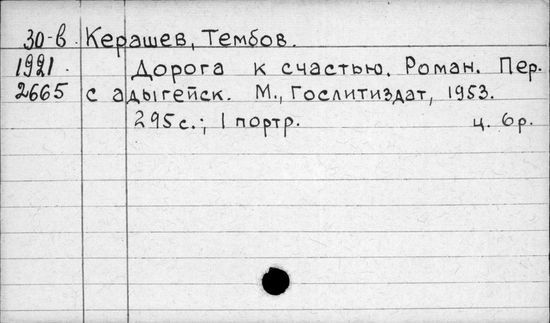 30-в Керашев, Тембов.
1921. Дорога к счастью. Роман. Пер.
2665 с адыгейск. М., Гослитиздат, 1953.
295с.; 1 портр. ц. 6р.